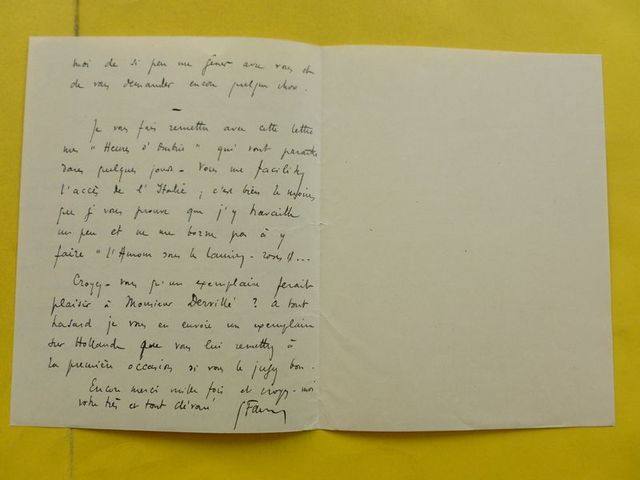 moi de si peu me gêner avec vous et
de vous demander encore quelque chose.
Je vous fais remettre avec cette lettre
mes "Heures d'Ombrie" qui vont paraître
dans quelques jours. Vous me facilitez
l'accès de l'Italie ; c'est bien le moins
que je vous prouve que j'y travaille
un peu et ne me borne pas à y
faire "l'Amour sous les lauriers-roses"!...
Croyez-vous qu'un exemplaire ferait
plaisir à Monsieur Dervillé ? A tout
hasard je vous en envoie un exemplaire
sur Hollande que vous lui remettrez à
la première occasion si vous le jugez bon.
Encore merci mille fois et croyez-moi
votre très et tout dévoué